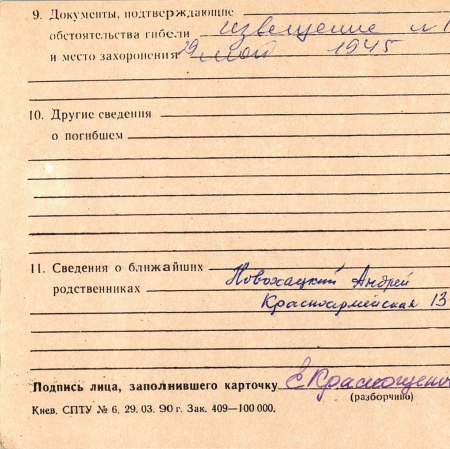 9. Документы, подтверждающие
обстоятельства гибели извещение №1
и место захоронения 29 мая 1945
10. Другие сведения
о погибшем
11. Сведения о ближайших
родственниках Новохацкий Андрей
Красноармейская 13
Подпись лица, заполнившего карточку Е Краснощеко
(разборчиво)
Киев. СПТУ № 6. 29. 03. 90 г. Зак. 409—100 000.